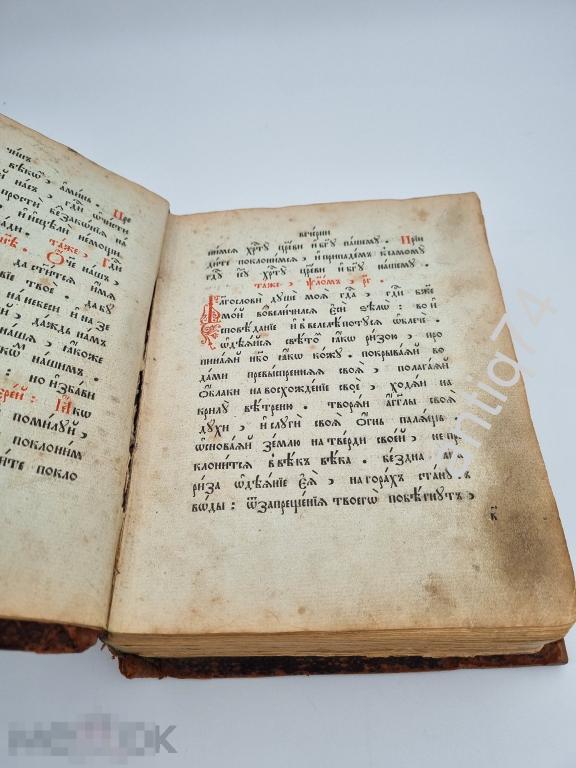 чишъ
вѣкѡ , аминь . Пре
й насъ , гди ѡчисти
прости беззаконїя на
и исцели немощи
ади . таже , Гди
Оч҃е нашъ ,
да ст҃итсѧ имѧ
вїе твое . дабꙋ
на небеси и на зе
й , даждь намъ
наша , ꙗкоже
комъ нашимъ .
но избави
ерей : Ꙗкѡ
помилꙋй ,
поклоним
ите покло
вечерни
нимсѧ хр҃тꙋ цр҃еви и бг҃ꙋ нашемꙋ . Прїи
дите поклонимсѧ , и припадемъ к самомꙋ
гдꙋ іс҃ꙋ хр҃тꙋ цр҃еви и бг҃ꙋ нашемꙋ .
таже , ѱломъ , рг .
Благослови дꙋше моѧ гда , гди бж҃е
мой возвеличилсѧ еси ѕѣлѡ : во и
сповѣданїе и в велелѣпотꙋ сѧ ѡблече .
ѡдѣѧйсѧ свѣтомъ ꙗкѡ ризою , про
пинаѧй нбо ꙗкѡ кожꙋ . покрываѧй во
дами превыспреннѧѧ своѧ , полагаѧй
облаки на восхожденїе свое , ходѧй на
крилꙋ вѣтреню . творѧй агг҃лы своѧ
дꙋхи , и слꙋги своѧ огнь палѧщь
ѡсноваѧй землю на тверди своей , не пре
клонитсѧ в вѣкъ вѣка . бездна ꙗкѡ
риза ѡдѣѧнїе еѧ , на горахъ станꙋтъ
воды : ѿ запрещенїѧ твоегѡ побѣгнꙋтъ ,
к҃
antiq74
МЕШОК